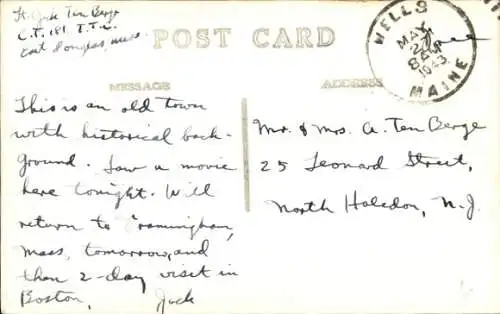 Jack Ten Berge
C.T. 181 T.T.
East Douglas, Mass.
POST CARD
WELLS
MAY
27
8 AM
1943
MAINE
Free
MESSAGE
ADDRESS
This is an old town
with historical back-
ground. Saw a movie
here tonight. Will
return to Framingham,
Mass, tomorrow, and
then 2-day visit in
Boston,
Jack
Mr. & Mrs. A. Ten Berge
25 Leonard Street,
North Haledon, N.J.